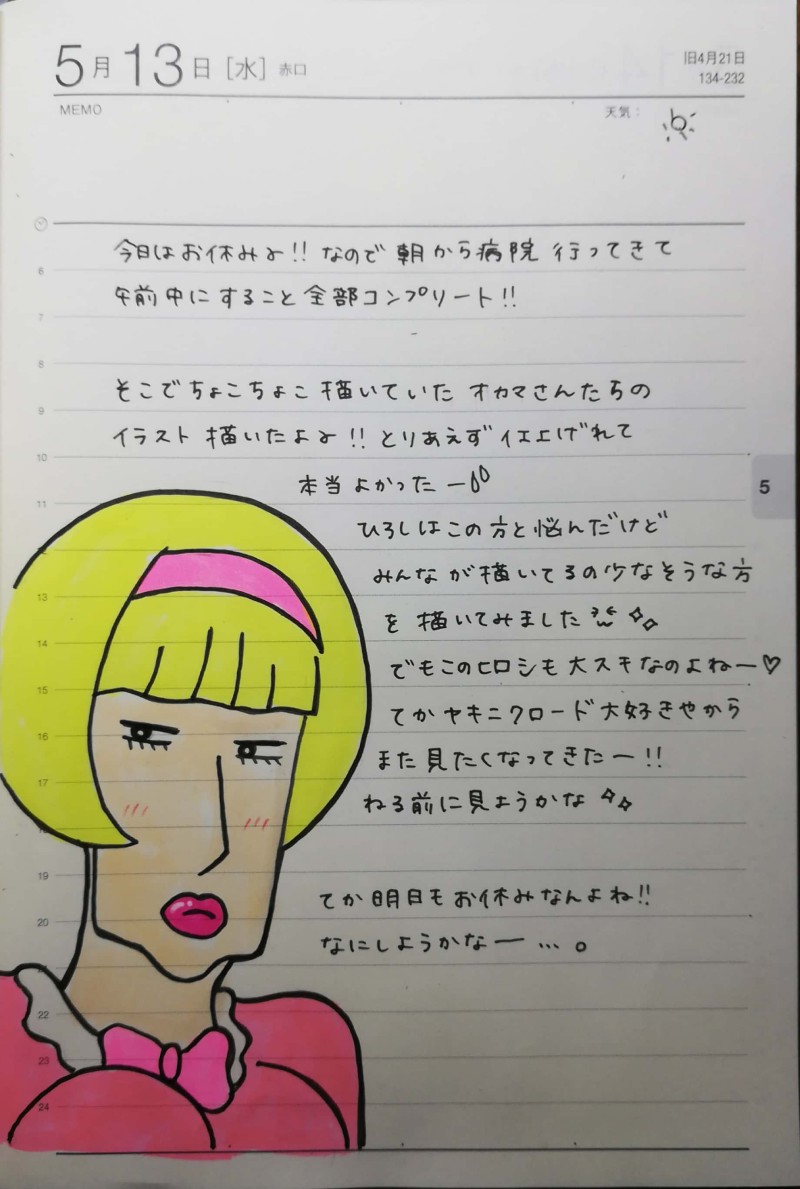 5月13日[水]赤口
旧4月21日
134-232
MEMO
天気:
今日はお休みよ!! なので 朝から病院 行ってきて
午前中にすること全部コンプリート!!
そこでちょこちょこ描いていた オカマさんたちの
イラスト 描いたよよ!! とりあえず 仕上げれて
本当よかったー
ひろしはこの方と悩んだけど
みんなが描いてるの少なそうな方
を 描いてみました
でもこのヒロシも大スキなのよねー♡
てかヤキニクロード大好きやから
また見たくなってきたー!!
ねる前に見ようかな
てか明日もお休みなんよね!!
なにしようかなー…。
5
6
7
8
9
10
11
13
14
15
16
17
18
19
20
22
23
24